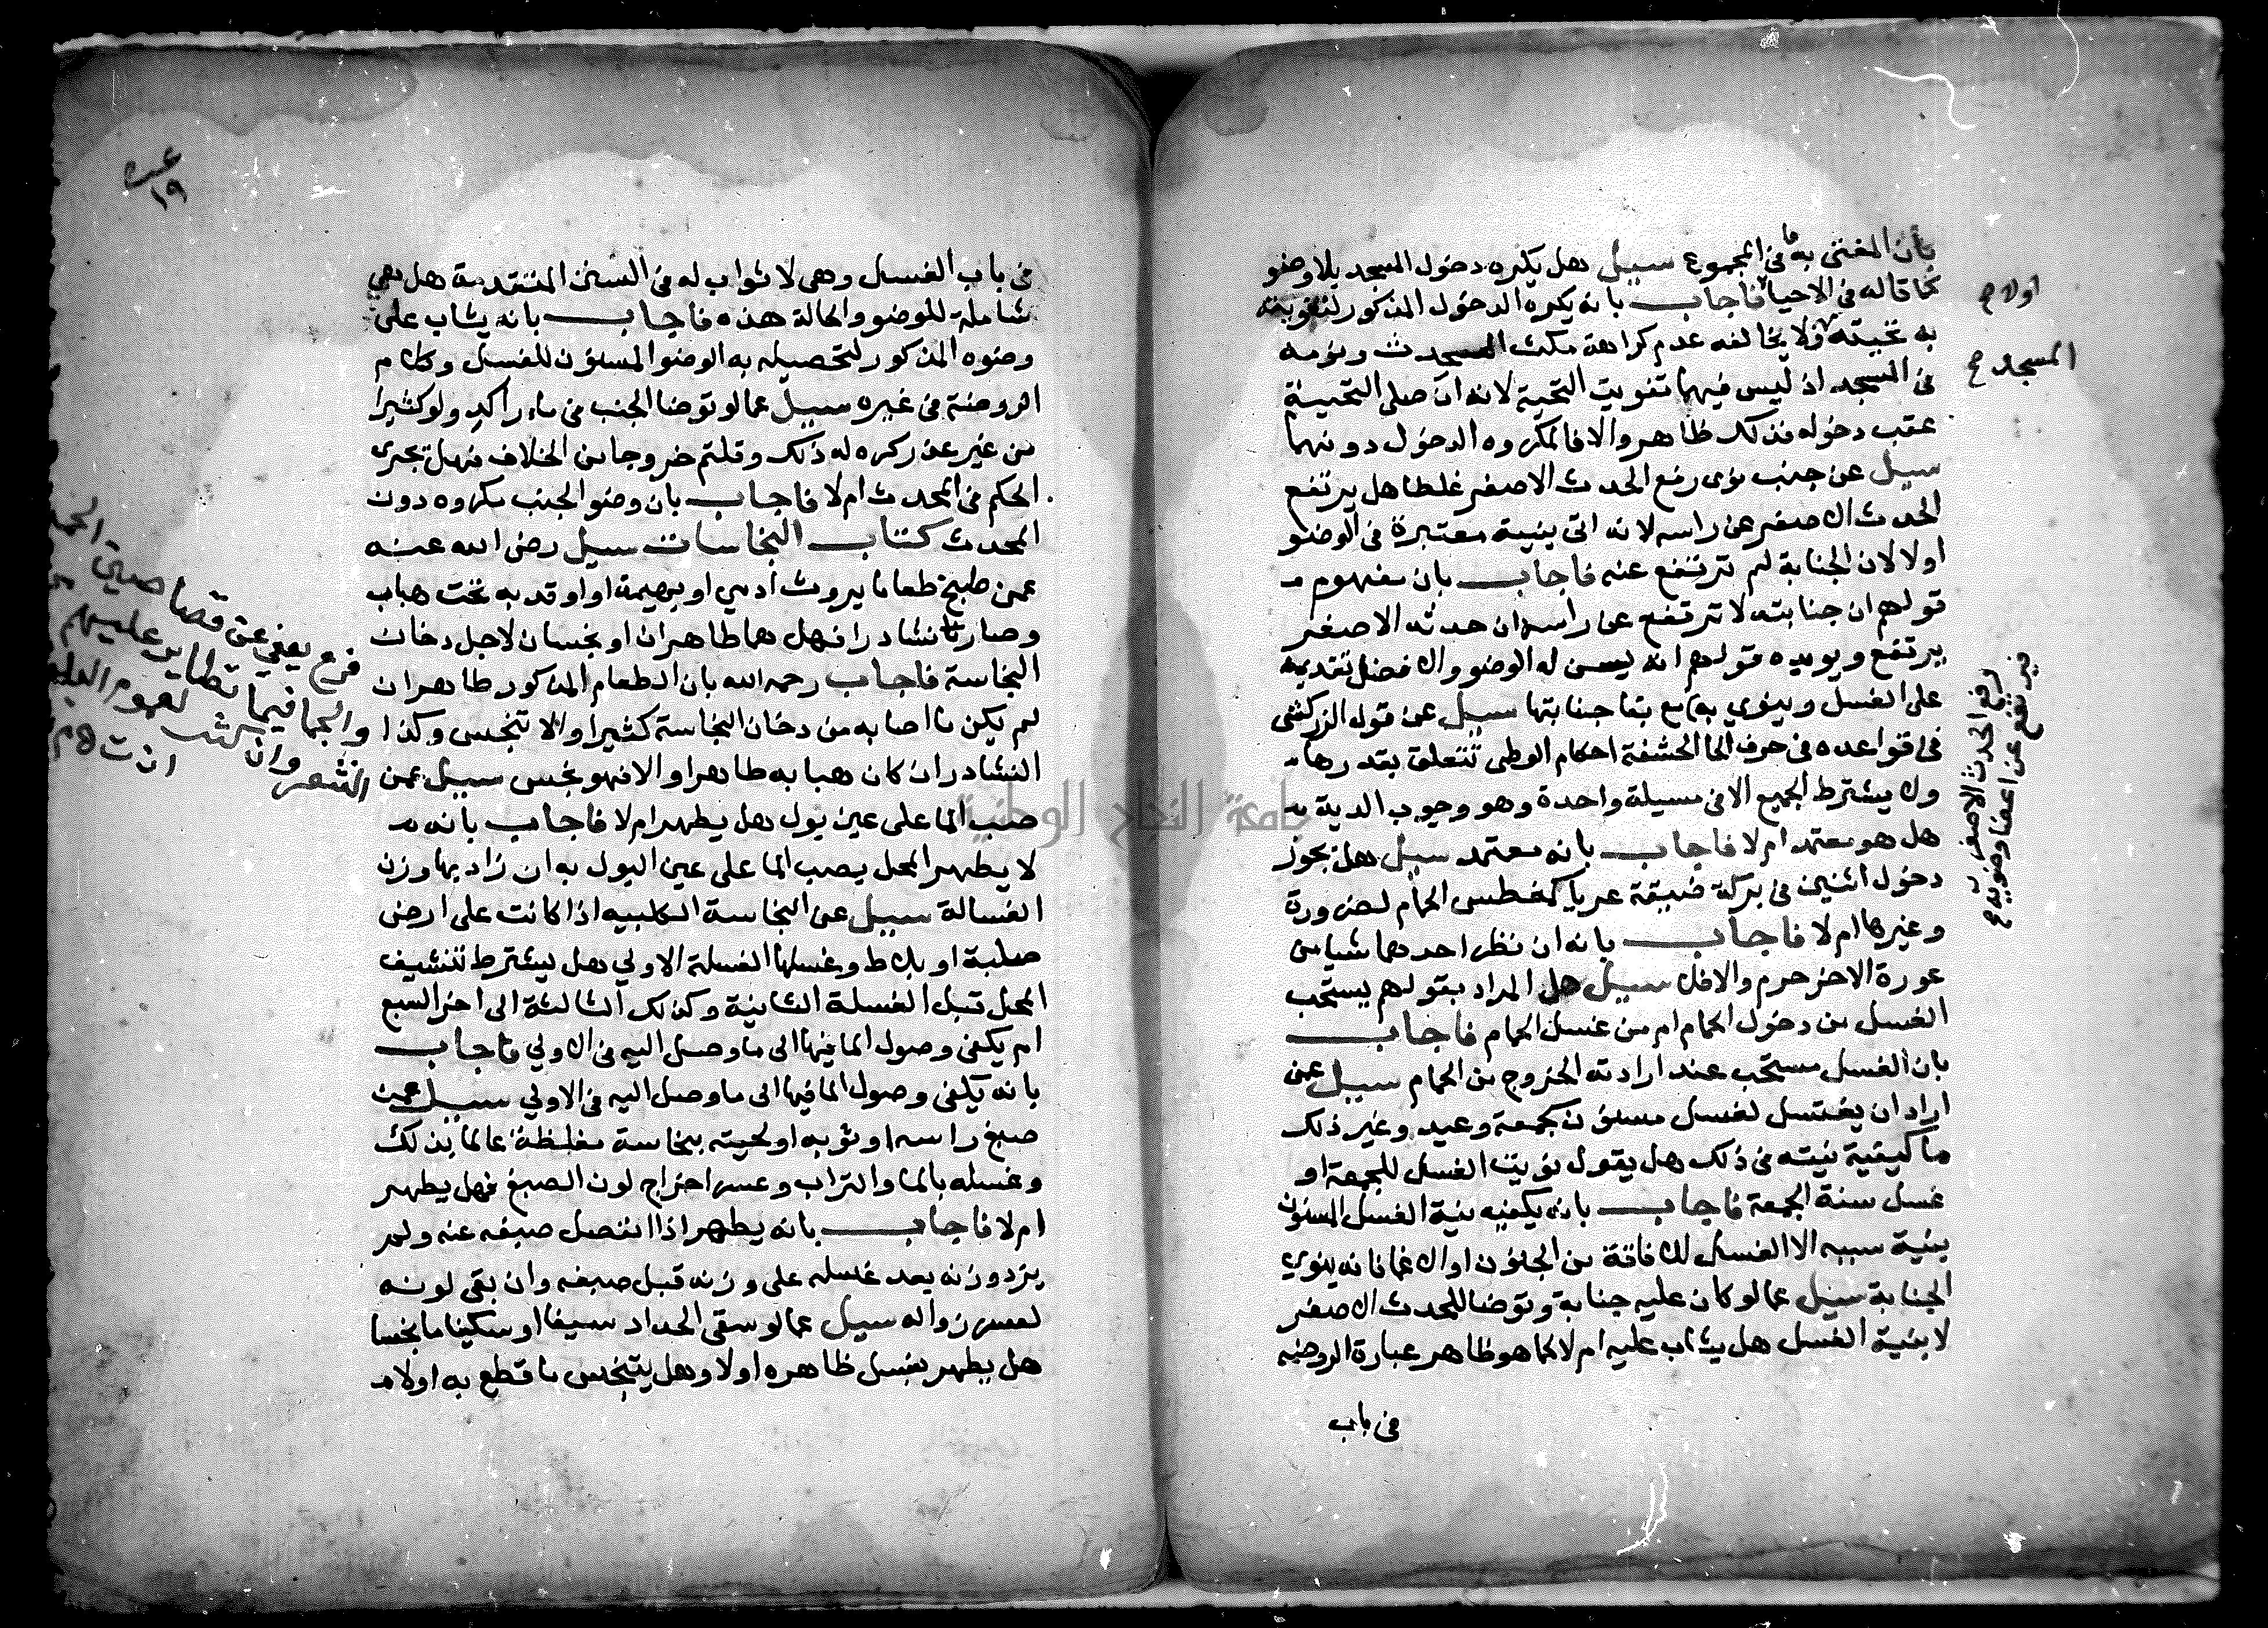 بأن المفتى به ما فى المجموع سيل هل يكره دخول المسجد بلا وضو
كما قاله فى الاحيا فاجاب بانه يكره الدخول المذكور لتفويته
به تحيته ولا يخالفه عدم كراهة مكث المحدث ونومه
فى المسجد اذ ليس فيهما تفويت التحية لانه ان صلى التحية
عقب دخوله فذلك ظاهر والا فالمكروه الدخول دونهما
سيل عن جنب نوى رفع الحدث الاصغر غلطا هل يرتفع
الحدث الاصغر عن راسه لانه اتى بنية معتبرة فى الوضو
اولا لان الجنابة لم ترتفع عنه فاجاب بان مفهوم
قولهم ان جنابته لا ترتفع عن راسه ان حدثه الاصغر
يرتفع ويويده قولهم انه يسن له الوضو والافضل تقديمه
على الغسل وينوي به مع بقا جنابتها سيل عن قول الزركشى
فى قواعده فى حرف الحا الحشفة احكام الوطى تتعلق بقدرها
ولا يشترط الجميع الا فى مسيلة واحدة وهو وجوب الدية
هل هو معتمد ام لا فاجاب بانه معتمد سيل هل يجوز
دخول اثنين فى بركة ضيقة عريا كمغطس الحمام لضرورة
وغيرها ام لا فاجاب بانه ان نظر احدهما شيا من
عورة الاخر حرم والا فلا سيل هل المراد بقولهم يستحب
الغسل من دخول الحمام ام من غسل الحمام فاجاب
بان الغسل مستحب عند ارادته الخروج من الحمام سيل عمن
اراد ان يغتسل لغسل مسنون كجمعة وعيد وغير ذلك
ما كيفية نيته فى ذلك هل يقول نويت الغسل للجمعة او
غسل سنة الجمعة فاجاب بانه يكفيه نية الغسل المسنون
بنية سببه الا الغسل للافاقة من الجنون او الاغما فانه ينوي
الجنابة سيل عما لو كان عليه جنابة وتوضا للحدث الاصغر
لا بنية الغسل هل يثاب عليه ام لا كما هو ظاهر عبارة الروضه
فى باب
اولا ح
المسجد ح
رفع الحدث الاصغر
فيرتفع عن اعضا وضوئه ح
١٩
فى باب الغسل وهى لا ثواب له فى السنن المتقدمة هل هي
شاملة للوضو والحالة هذه فاجاب بانه يثاب على
وضوه المذكور لتحصيله به الوضو المسنون للغسل وكلام
الروضة فى غيره سيل عما لو توضا الجنب فى ماء راكد ولو كثيرا
من غير عذر كره له ذلك وقلتم خروجا من الخلاف فهل تجرى
الحكم فى المحدث ام لا فاجاب بان وضو الجنب مكروه دون
المحدث كتاب النجاسات سيل رضى الله عنه
عمن طبخ طعاما بروث ادمي او بهيمة او اوقد به تحت هباب
وصار نشادرا فهل هما طاهران او نجسان لاجل دخان
النجاسة فاجاب رحمه الله بان الطعام المذكور طاهر ان
لم يكن ما اصابه من دخان النجاسة كثيرا والا تنجس وكذا
النشادر ان كان هبابه طاهرا والا فهو نجس سيل عمن
صب الما على عين بول هل يطهر ام لا فاجاب بانه
لا يطهر المحل بصب الما على عين البول به ان زاد بها وزن
الغسالة سيل عن النجاسة الكلبيه اذا كانت على ارض
صلبة او بلاط وغسلها الغسلة الاولي هل يشترط تنشيف
المحل قبل الغسلة الثانية وكذلك الثالثة الى اخر السبع
ام يكفى وصول الما فيها الى ما وصل اليه فى الاولي فاجاب
بانه يكفى وصول الما فيها الى ما وصل اليه فى الاولي سيل عمن
صبغ راسه او ثوبه او لحيته بنجاسة مغلظة عالما بذلك
وغسله بالما والتراب وعسر اخراج لون الصبغ فهل يطهر
ام لا فاجاب بانه يطهر اذا انفصل صبغه عنه ولم
يزد وزنه بعد غسله على وزنه قبل صبغه وان بقى لونه
لعسر زواله سيل عما لو سقى الحداد سيفا او سكينا ما نجسا
هل يطهر بغسل ظاهره اولا وهل يتنجس ما قطع به اولا
فرع يعفى عن قصاصتى
والجما فيما تطاير عليهم
الشعر وان كثر لعموم
جامعة النجاح الوطنية